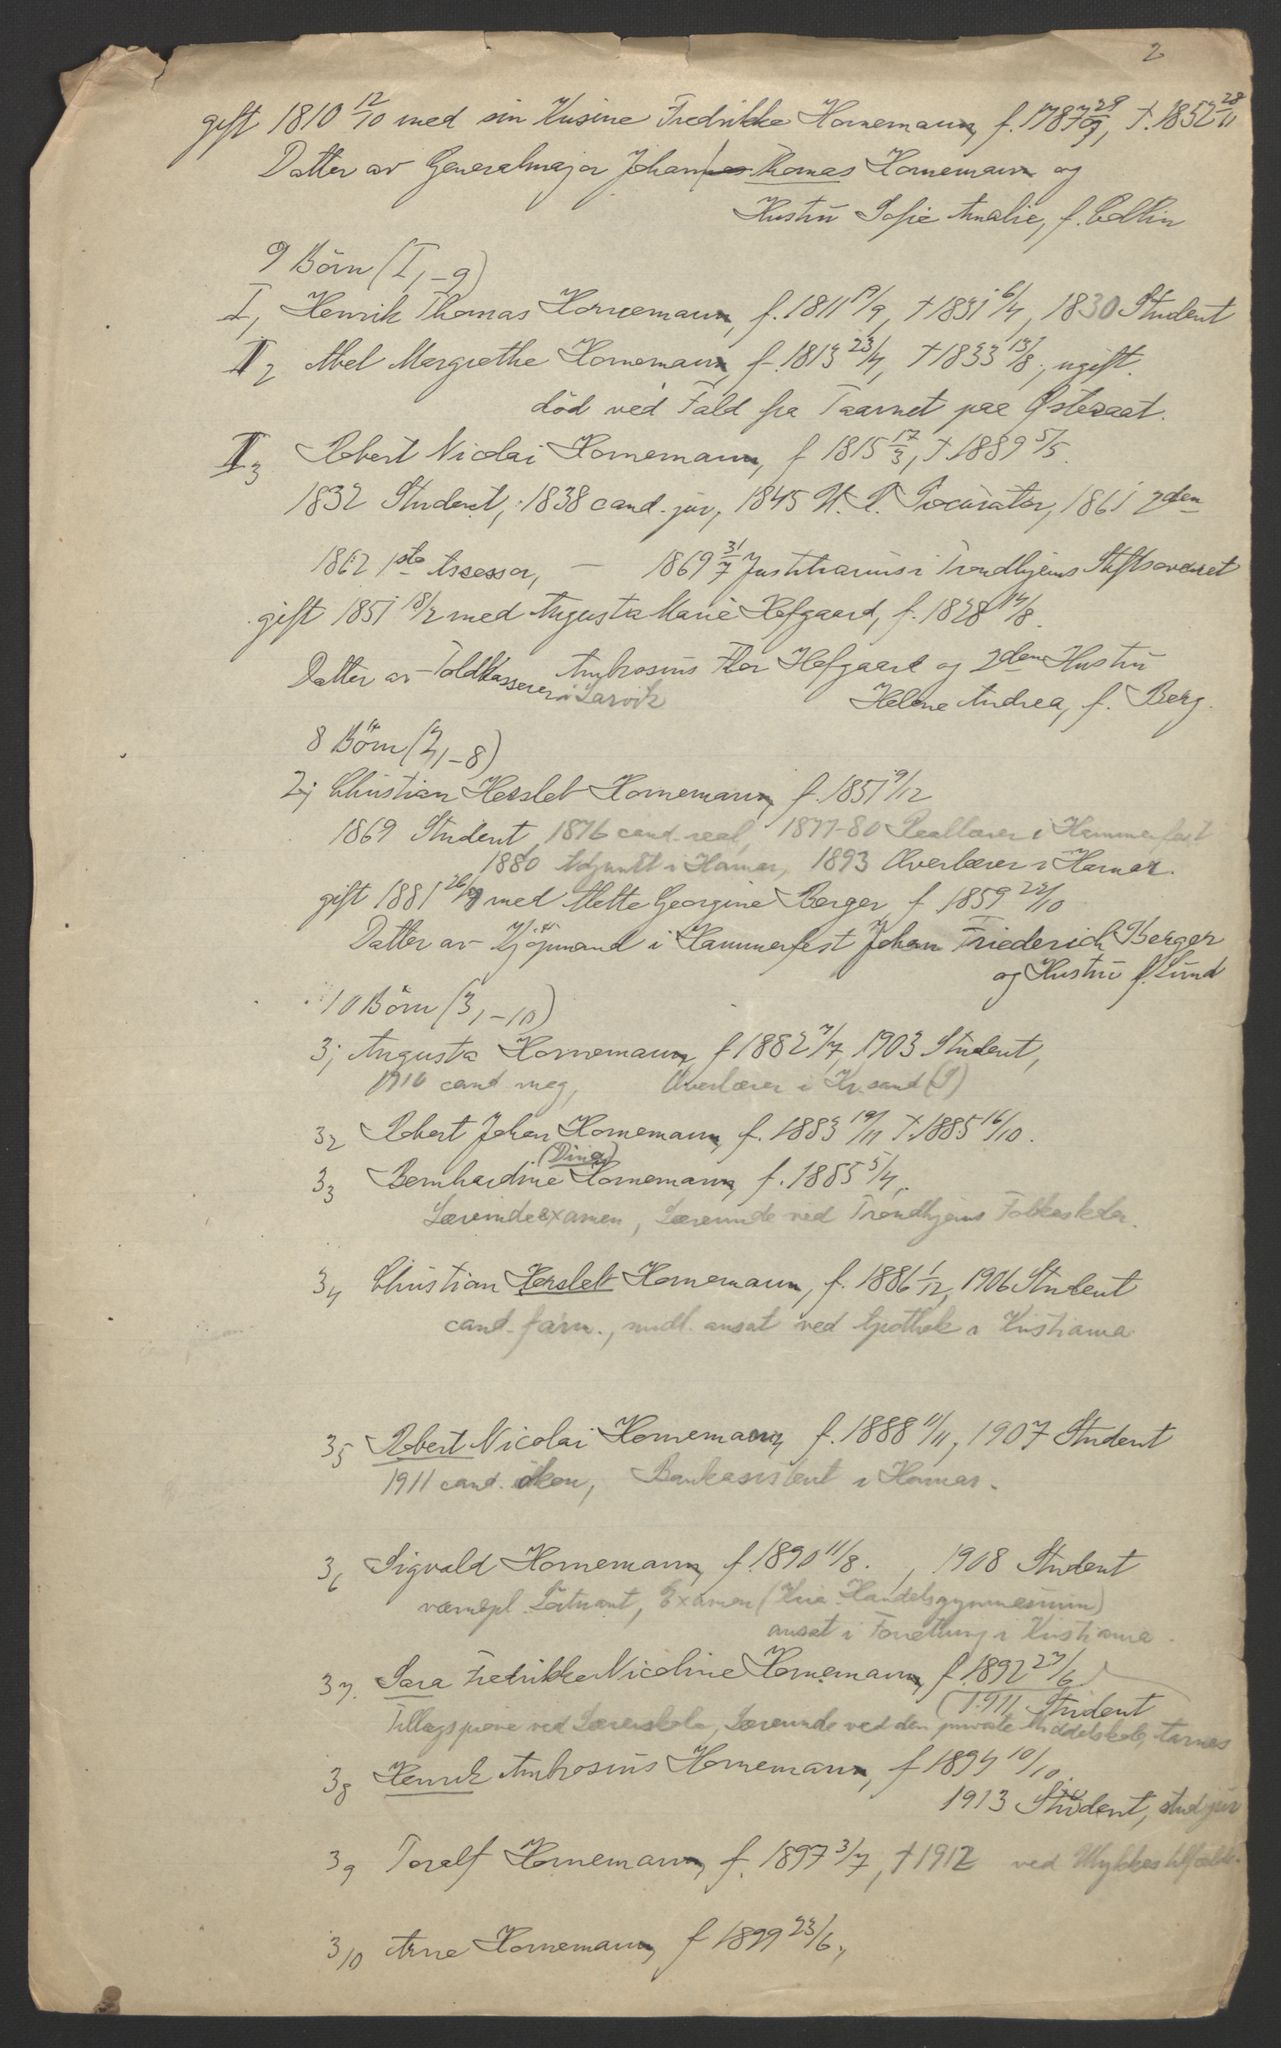 2
gift 1810 12/10 med sin Kusine Fredrikke Hornemann, f. 1787 29/9, †. 1852 28/11
Datter av Generalmajor Johan Thomas Hornemann og
Hustru Sofie Amalie, f. Collin
9 Börn (I, 1-9)
I, Henrik Thomas Hornemann, f. 1811 19/9, † 1831 6/4, 1830 Student
II 2 Abel Margrethe Hornemann, f. 1813 23/4, † 1833 13/8, ugift.
död ved Fald fra Taarnet paa Østeraat.
II 3 Robert Nicolai Hornemann, f 1815 17/3, † 1889 5/5.
1832 Student, 1838 cand. jur, 1845 Procurator, 1861 2den
1862 1ste Assessor, — 1869 31/7 Justitiarius i Trondhjems Stiftsoverret
gift 1851 18/2 med Augusta Marie Hofgaard, f. 1828 14/8.
Datter av Toldkasserer i Larvik Ambrosius Flor Hofgaard og 2den Hustru
Helene Andrea, f. Berg.
8 Börn (2, 1-8)
2, Christian Hersleb Hornemann, f. 1851 9/12
1869 Student, 1876 cand. real, 1877-80 Reallærer i Hammerfest
1880 Adjunkt i Hamar, 1893 Overlærer i Hamar.
gift 1881 med Mette Georgine Berger, f. 1859 22/10
Datter av Kjöpmand i Hammerfest Johan Friederich Berger
og Hustru f. Lund
10 Börn (3, 1-10)
3, Augusta Hornemann, f 1882 7/7, 1903 Student,
1910 cand mag, Overlærer i Kr.sand (S)
3 2 Robert Johan Hornemann, f. 1883 19/11 †. 1885 16/10.
(Dina)
3 3 Bernhardine Hornemann, f. 1885 5/4,
Lærerindeexamen, Lærerinde ved Trondhjems Folkeskoler.
3 4 Christian Hersleb Hornemann, f. 1886 1/12, 1906 Student
cand. farm., midl. ansat ved Apothek i Kristiania
3 5 Robert Nicolai Hornemann, f. 1888 11/11, 1907 Student
1911 cand. ökon, Bankassistent i Hamar.
3 6 Sigvald Hornemann, f. 1890 11/8. , 1908 Student
værnepl. Löitnant, Examen (Kria Handelsgymnasium)
ansat i Forretning i Kristiania.
3 7. Sara Fredrikke Nicoline Hornemann, f. 1892 27/6
(1911 Student
Tillægsprøve ved Lærerskole, Lærerinde ved den private Middelskole,
3 8 Henrik Ambrosius Hornemann, f 1894 10/10.
1913 Student, stud jur
3 9 Toralf Hornemann, f. 1897 3/7, † 1912 ved Ulykkestilfælde.
3 10 Arne Hornemann, f 1899 23/6,